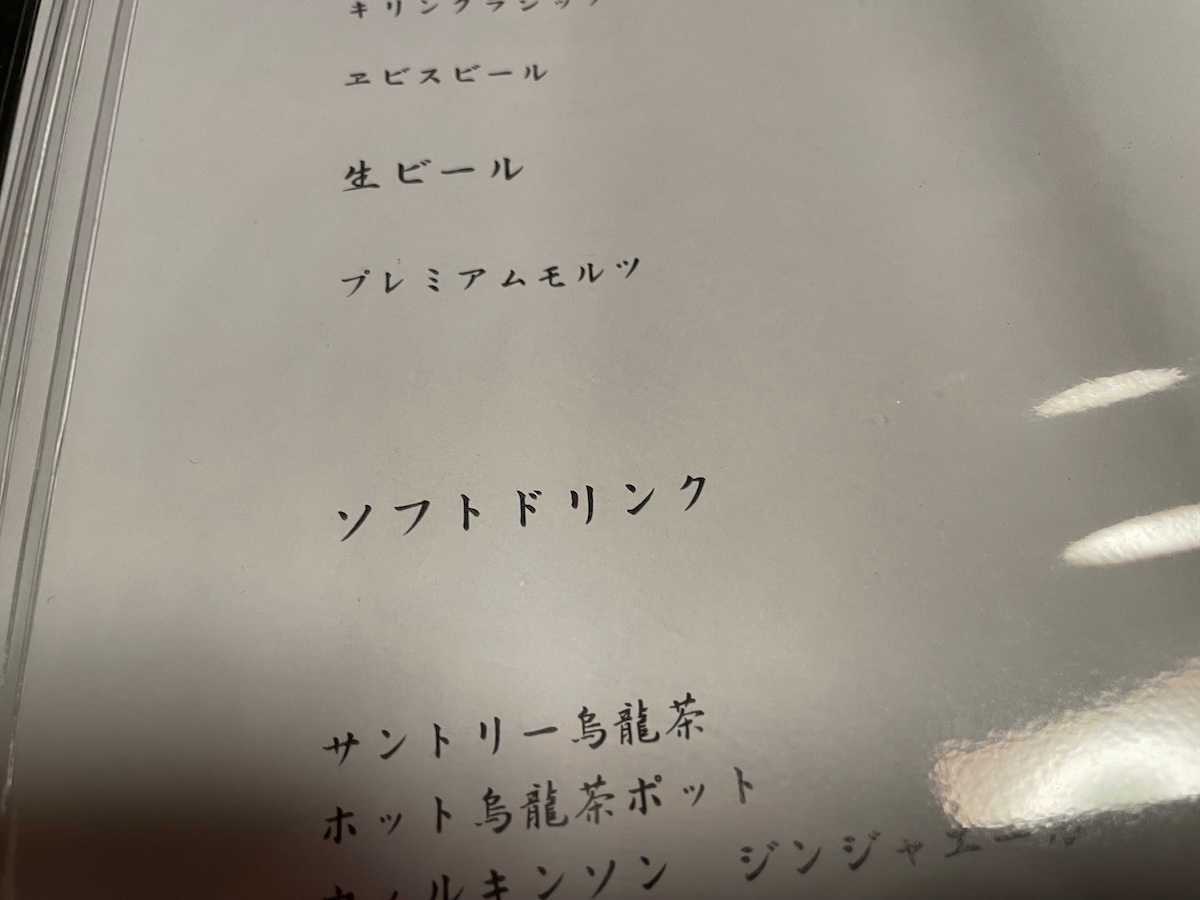 キリンクラシック
ヱビスビール
生ビール
プレミアムモルツ
ソフトドリンク
サントリー烏龍茶
ホット烏龍茶ポット
ウィルキンソン ジンジャエール